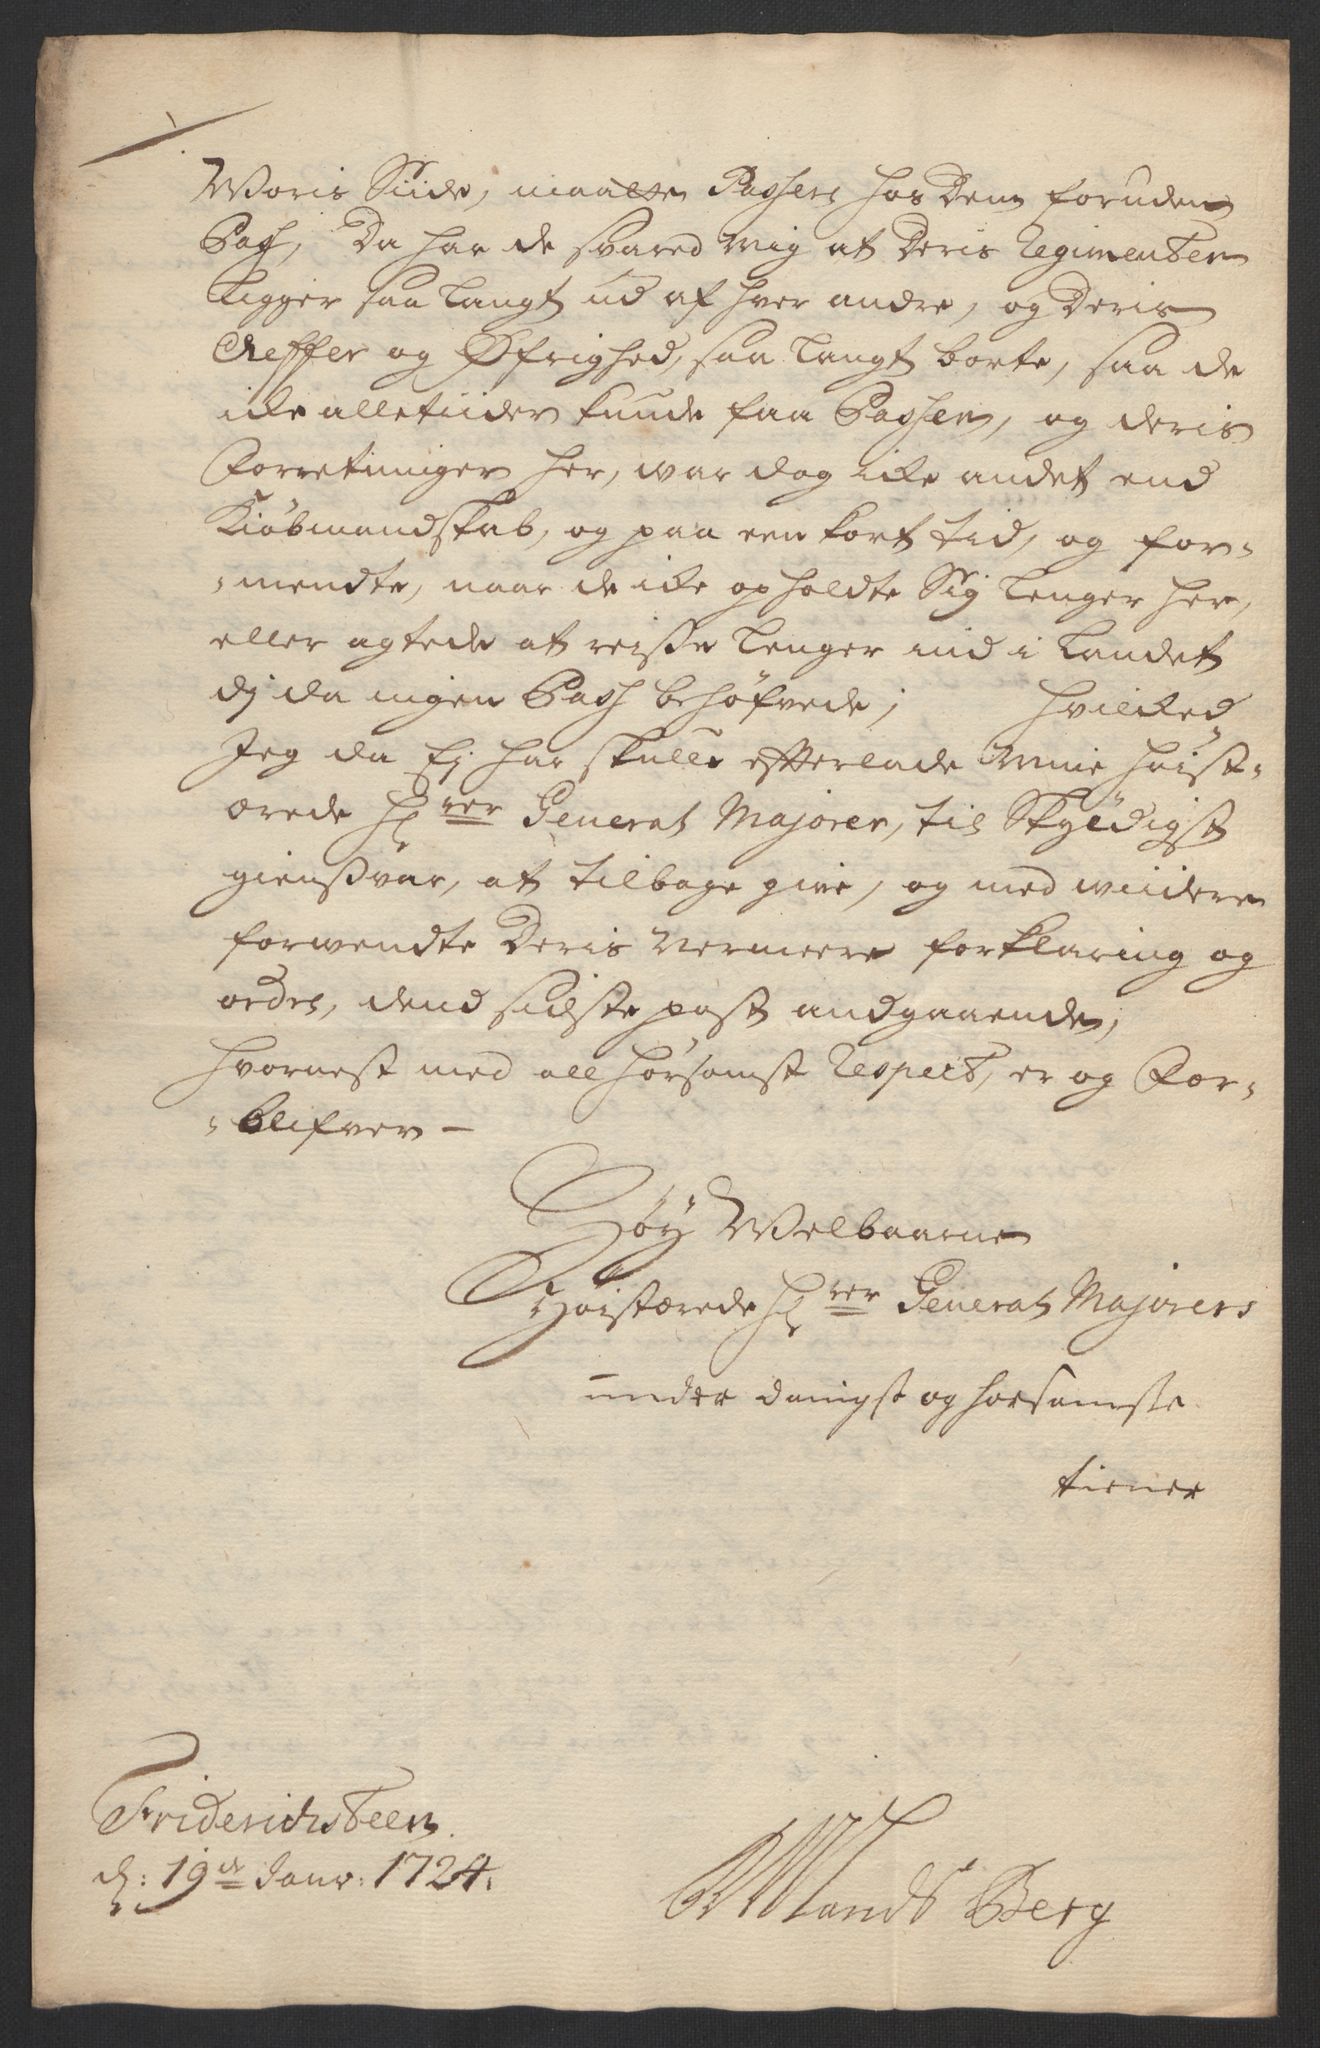 Woris Siide, maatte Passers hos Dem foruden
Pass, Da har de svared mig at Deris Regimenter
ligger saa langt ud af hver andre, og Deris
Cheffer og Øfrighed, saa langt borte, saa de
icke alletiider kunde faa Passer, og deris
Forretninger her, war dog icke andet end
Kiöbmandskab, og paa een kort tid, og for-
-mendte, naar de icke opholdte Sig lenger her,
eller agtede at reisse lenger ind i Landet
dj da ingen Pass behöfvede; hvilcked
Jeg da Ej har skulle efterlade Mine höist-
ærede Hrer General Majorer, til Skyldigst
giensvar, at tilbage give, og med wiidere
forwendte Deris nermeere forklaring og
ordre, dend sidste post andgaaende,
hvornest med all hörsomst Respect, er og For-
-blifver -
Höy Welbaarne
Höistærede Hrer General Majorers
under danigst og horsomste
tiener
Friderichsteen
d: 19de Janv: 1724.
Landsberg